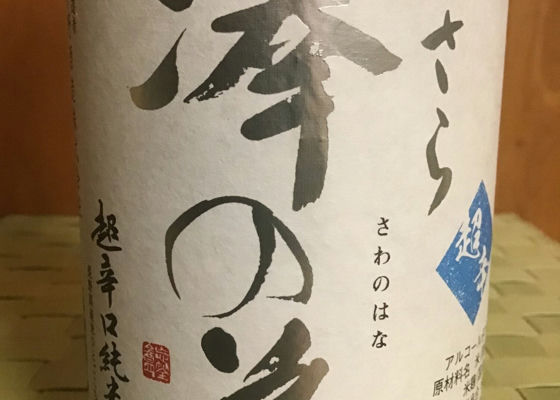 さら
澤の花
さわのはな
超辛
超辛口純米
アルコール
原材料名 米
米麹